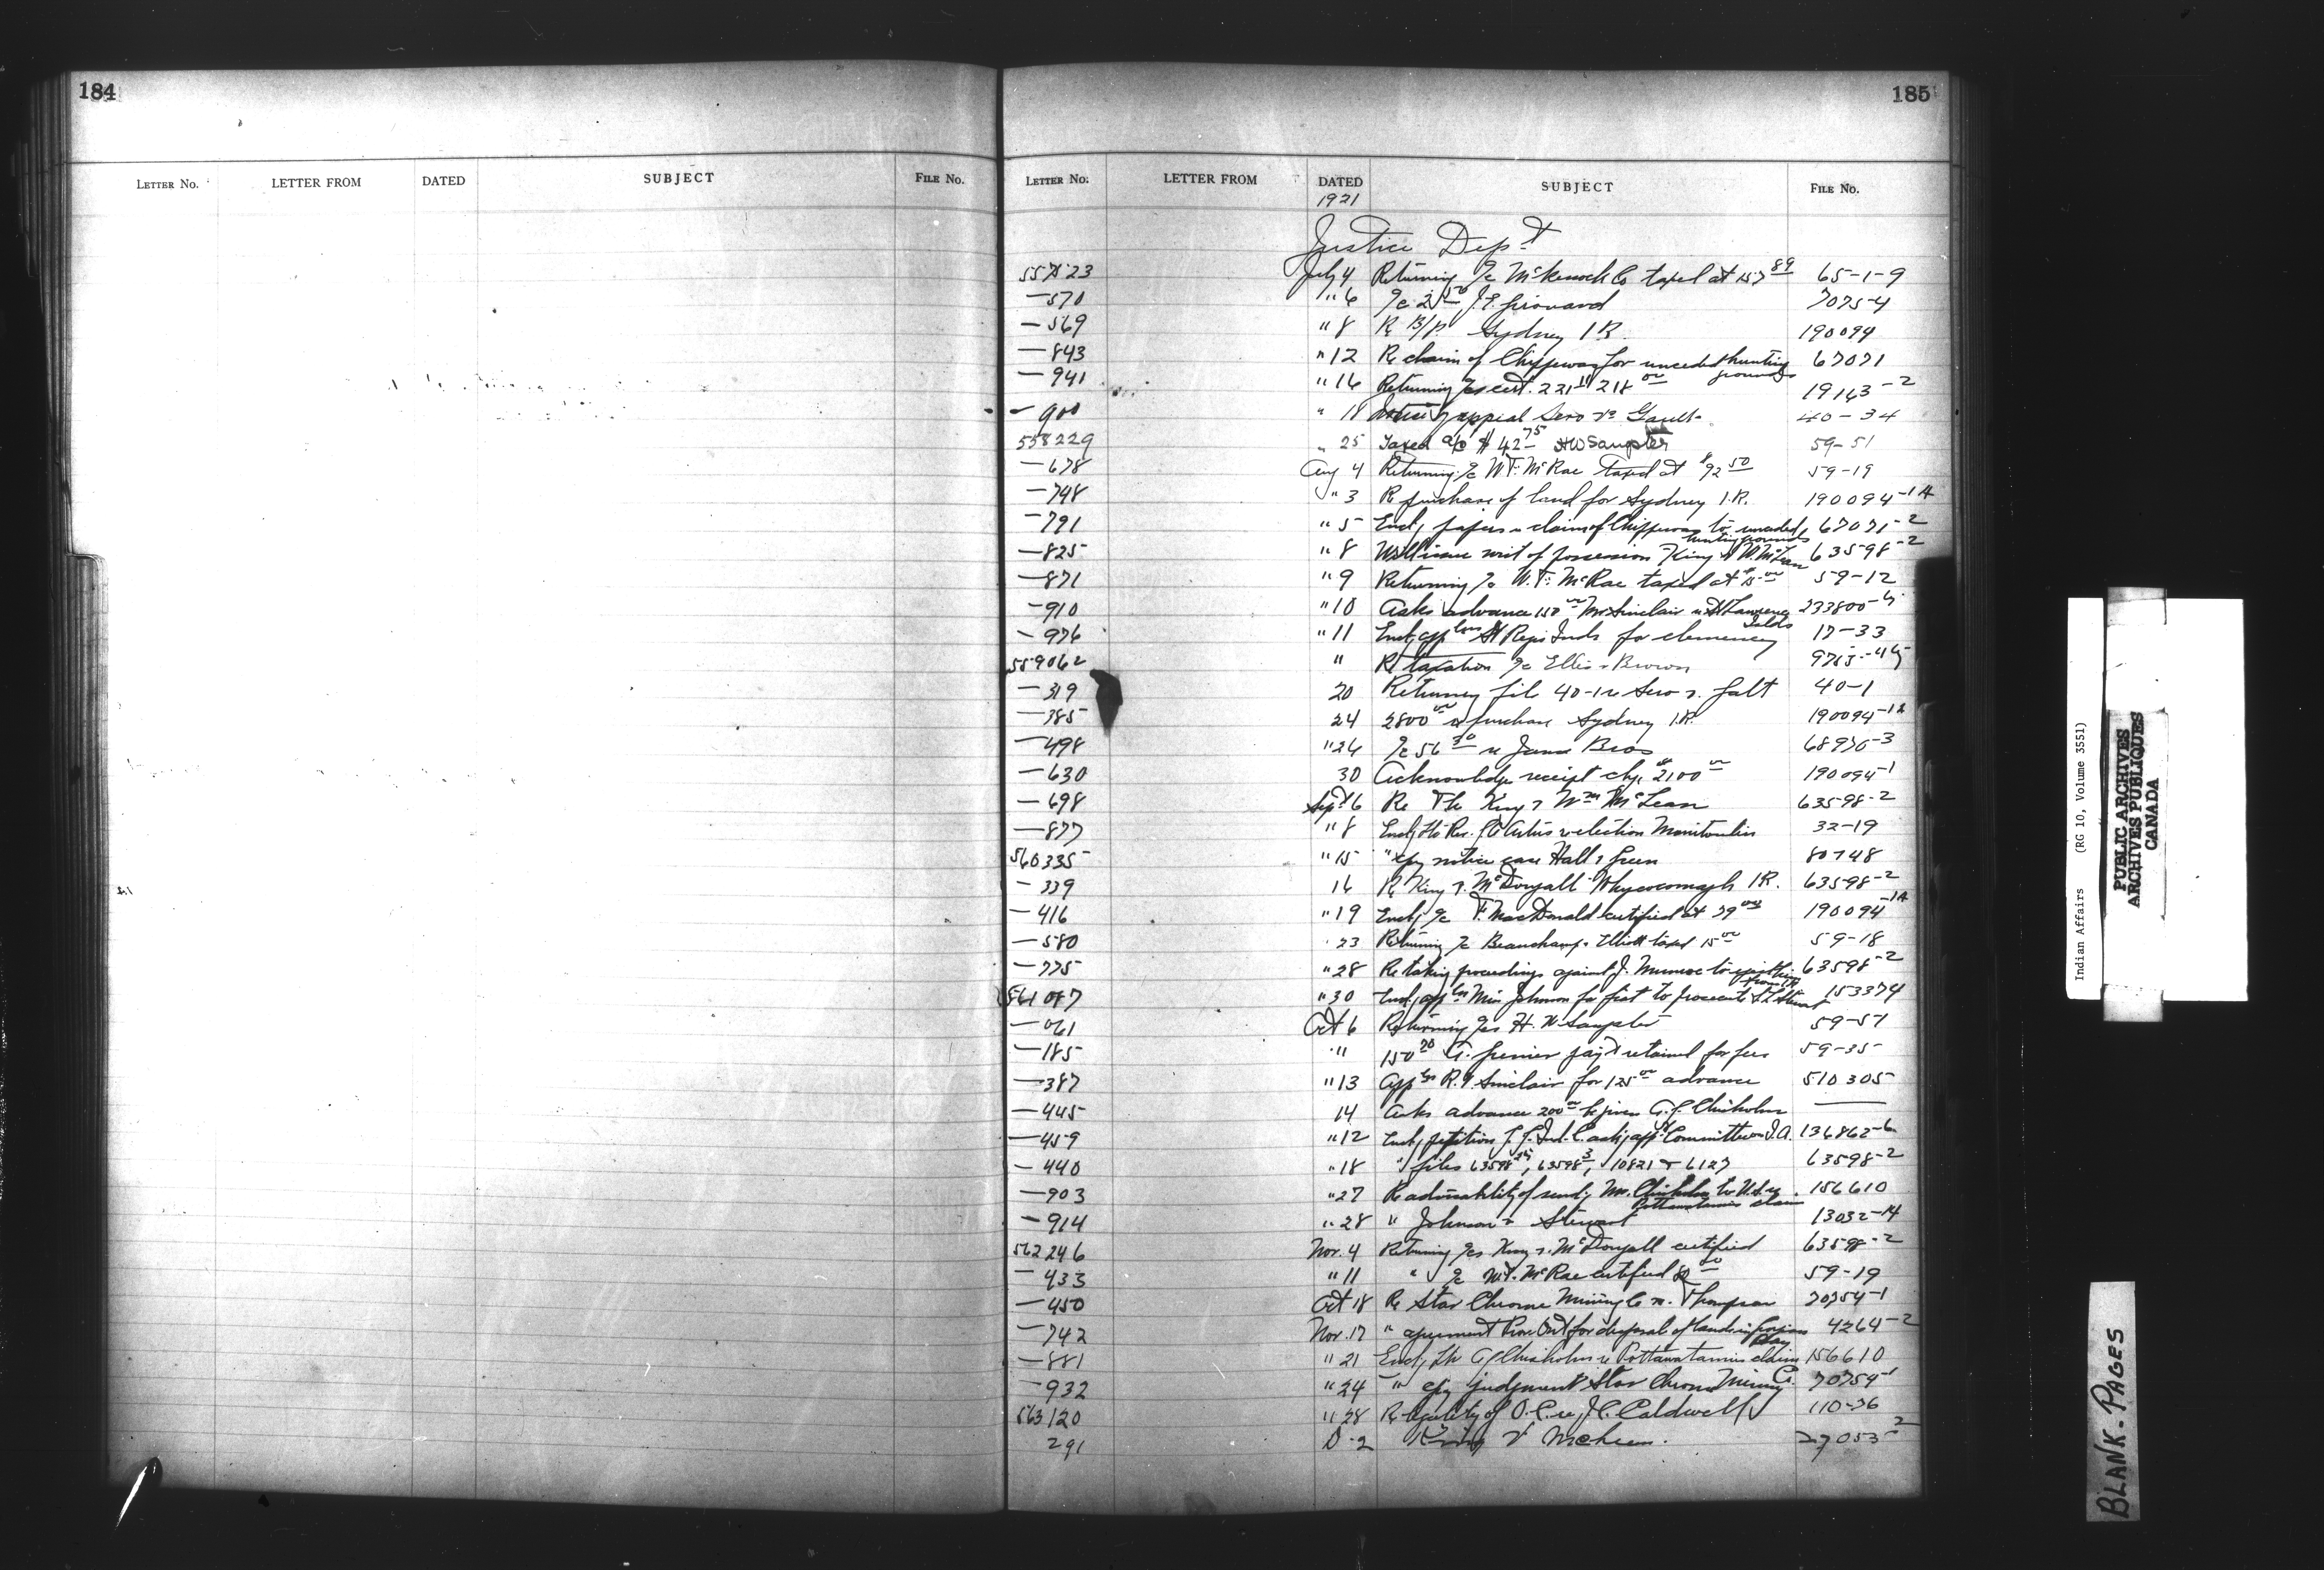 184
LETTER NO. LETTER FROM DATED SUBJECT FILE NO.
185
LETTER NO. LETTER FROM DATED SUBJECT FILE NO.
1921
Justice Dept
557523 July 4 Returning a/c taxed at 157 89 65-1-9
—570 " 6 a/c J.E. Girouard 7075-4
—569 " 8 Re B/P. Sydney I.R. 190094
—843 " 12 Re claim of Chippewas for unceded hunting grounds 67071
—941 " 16 Returning a/cs cert. 221 11 218 00 19163-2
—900 " 18 appeal Sero vs Gault 40-34
558229 " 25 Taxed a/c $42 75 HW Sangster 59-51
—678 Aug 4 Returning a/c W.F. McRae taxed at $92 50 59-19
—748 " 3 Re purchase of land for Sydney I.R. 190094-1A
—791 " 5 Encl, papers re claim of Chippewas to unceded hunting grounds 67071-2
—825 " 8 Will issue writ of possession King v Wm McLean 63598-2
—871 " 9 Returning a/c W.F. McRae taxed at $15 00 59-12
—910 " 10 Asks advance 150 00 Mr Sinclair re St Lawrence Islds 233800
—976 " 11 Encl, appln St Regis Inds for clemency 17-33
559062 " Re taxation a/c Ellis & Brown
—319 20 Returning file 40-1 re Sero v. Galt 40-1
—385 24 2800 00 re purchase Sydney I.R. 190094-1A
—498 " 26 a/c 56 30 re James Bros
—630 30 Acknowledge receipt chq. $2100 00 190094-1
—698 Sept 6 Re The King v Wm McLean 63598-2
—877 " 8 Encl, ltr Rev. re election Manitoulin 32-19
560335 " 15 " cpy notice case Hall v Green 80748
—339 16 Re King v. McDougall Whycocomagh I.R. 63598-2
—416 " 19 Encl, a/c F. MacDonald certified at 190094-1A
—580 " 23 Returning a/c Beauchamp & Elliott taxed 15 00 59-18
—775 " 28 Re taking proceedings against J. Munroe to 63598-2
561087 " 30 Encl, appln Miss Johnson for fiat to prosecute Stewart 153374
—061 Oct 6 Returning a/cs H.W. Sangster 59-51
—185 " " 150 70 G. Grenier payt retained for fees 59-35
—387 " 13 Appln R.V. Sinclair for 125 00 advance 510305
—445 14 Asks advance 200 00 be given A.G. Chisholm ——
—459 " 12 Encl, petition asking appt Committee 136862-6
—440 " 18 " files 63598, 63598 3, 10821 & 6127 63598-2
—903 " 27 Re advisability of sendg Mr. Chisholm to U.S. re Pottawatamies claim 156610
—914 " 28 " Johnson v Stewart 13032-14
562246 Nov. 4 Returning a/cs King v. McDougall certified 63598-2
—433 " 11 " a/c W.F. McRae certified 59-19
—450 Oct 18 Re Star Chrome Mining Co vs. Thompson 70754-1
—742 Nov. 17 " agreement Prov Ont for disposal of lands 4264-2
—881 " 21 Encl, ltr AG Chisholm re Pottawatamies claim 156610
—932 " 24 " cpy judgment Star Chrome Mining Co. 70754-1
563120 " 28 Re legality of O.C. re J.C. Caldwell 110-36
291 D-2 King v 27053-2
Indian Affairs (RG 10, Volume 3551)
PUBLIC ARCHIVES
ARCHIVES PUBLIQUES
CANADA
BLANK. PAGES